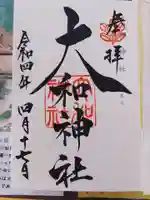 奉拝
大和神社
令和四年 四月十七日